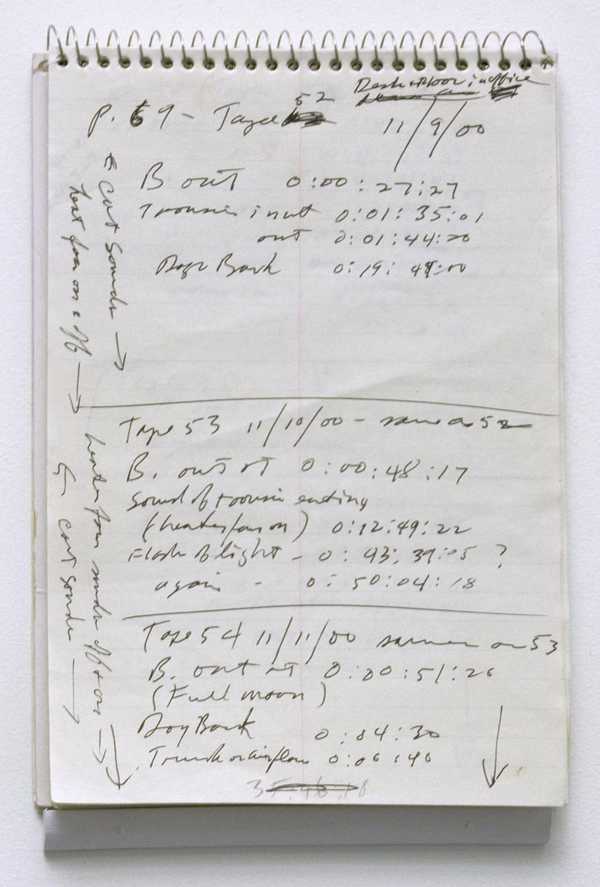 Desk & Floor in office
P. 69 - Tape 52
11/9/00
B out 0:00:27:27
in at 0:01:35:01
out 0:01:44:20
Dogs Bark 0:19:49:00
Tape 53 11/10/00 - same as 52
B. out at 0:00:48:17
Sound of mousie eating
(heater fan on) 0:12:49:22
Flash of light - 0:43:39:05 ?
again - 0:50:04:18
Tape 54 11/11/00 same as 53
B. out at 0:00:51:26
(Full moon)
Dog Bark 0:04:30
Truck or airplane 0:06:40
cat sounds
heat fan on & off
heater fan sounds off & on
cat sounds